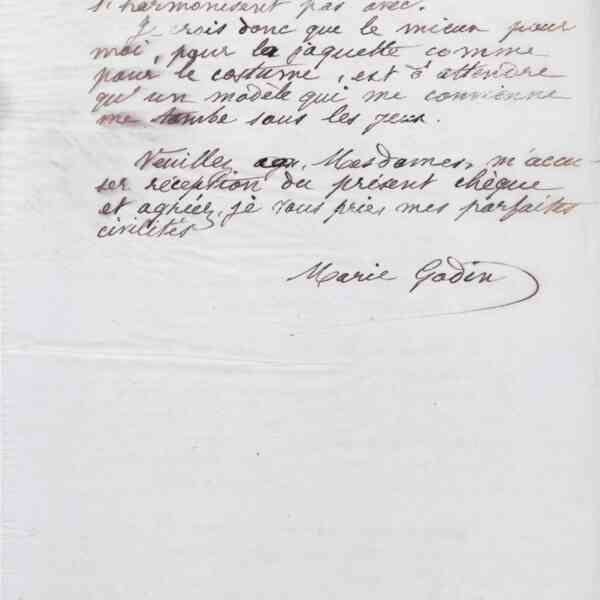 s'harmonisent pas avec.
Je crois donc que le mieux pour
moi, pour la jaquette comme
pour le costume, est d'attendre
qu'un modèle qui me convienne
me tombe sous les yeux.
Veuillez Mesdames, m'accu-
ser réception du présent chèque
et agréer, je vous prie, mes parfaites
civilités
Marie Godin